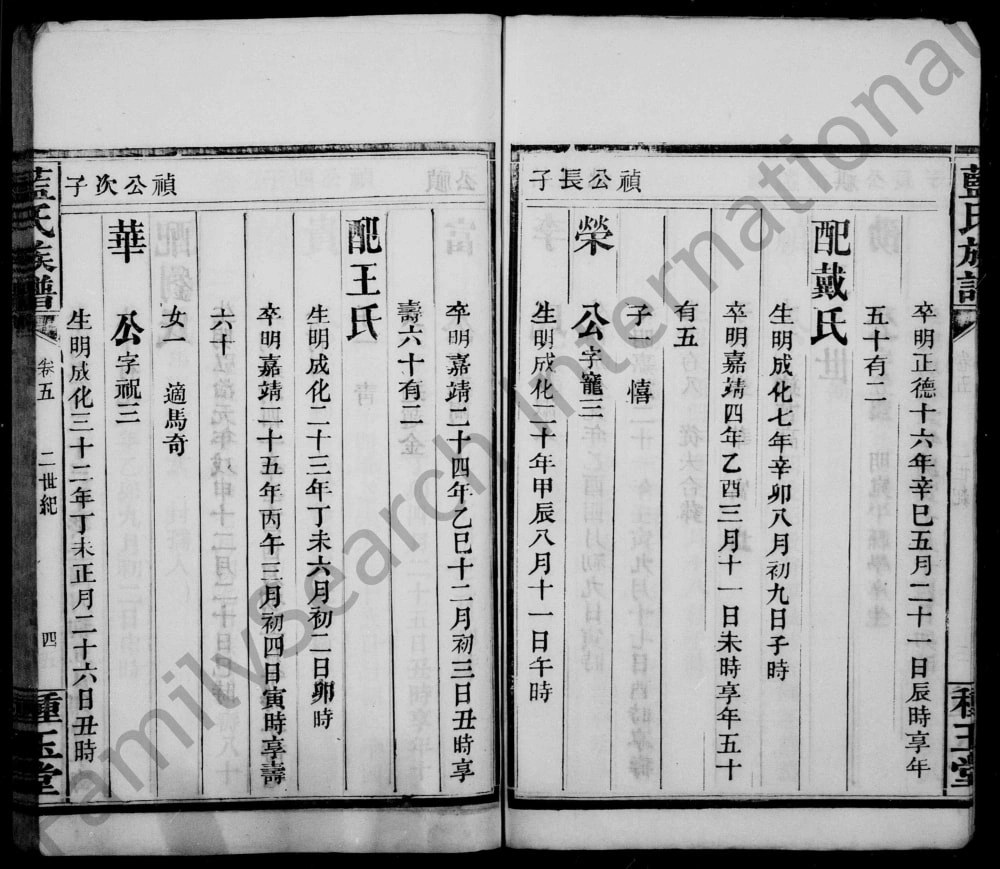 藍氏族譜 種玉堂
卒明正德十六年辛巳五月二十一日辰時享年
五十有二
配戴氏
生明成化七年辛卯八月初九日子時
卒明嘉靖四年乙酉三月十一日未時享年五十
有五
子一 僖
禎公長子
榮公字寵三
生明成化二十年甲辰八月十一日午時
卒明嘉靖二十四年乙巳十二月初三日丑時享
壽六十有二
配王氏
生明成化二十三年丁未六月初二日卯時
卒明嘉靖二十五年丙午三月初四日寅時享壽
六十
女一 適馬奇
禎公次子
華公字祝三
生明成化二十三年丁未正月二十六日丑時
藍氏族譜 卷五 二世紀 四 種玉堂
FamilySearch International